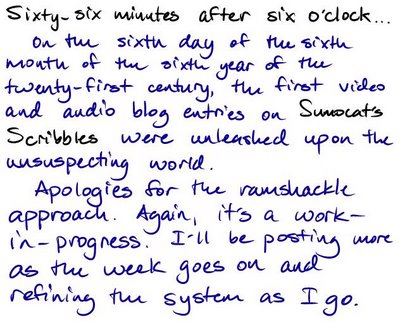 Sixty-six minutes after six o'clock...
On the sixth day of the sixth
month of the sixth year of the
twenty-first century, the first video
and audio blog entries on Sumocat's
Scribbles were unleashed upon the
unsuspecting world.
Apologies for the ramshackle
approach. Again, it's a work-
in-progress. I'll be posting more
as the week goes on and
refining the system as I go.